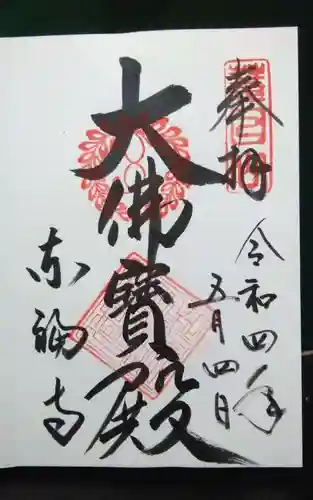 奉拝
令和四年
五月四日
大佛寶殿
東福寺